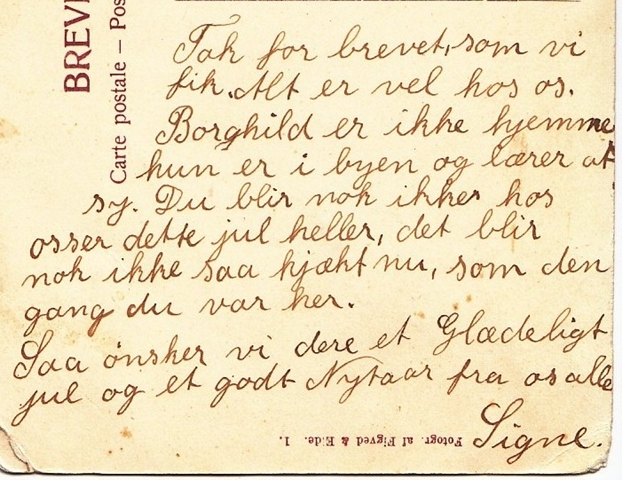 BREV
Carte postale – Pos
Tak for brevet, som vi
fik. Alt er vel hos os.
Borghild er ikke hjemme
hun er i byen og lærer at
sy. Du blir nok ikke hos
osser dette jul heller, det blir
nok ikke saa kjækt nu, som den
gang du var her.
Saa ønsker vi dere et Glædeligt
jul og et godt Nytaar fra os alle
Signe.
Fotogr. af Figved & Eide. 1.